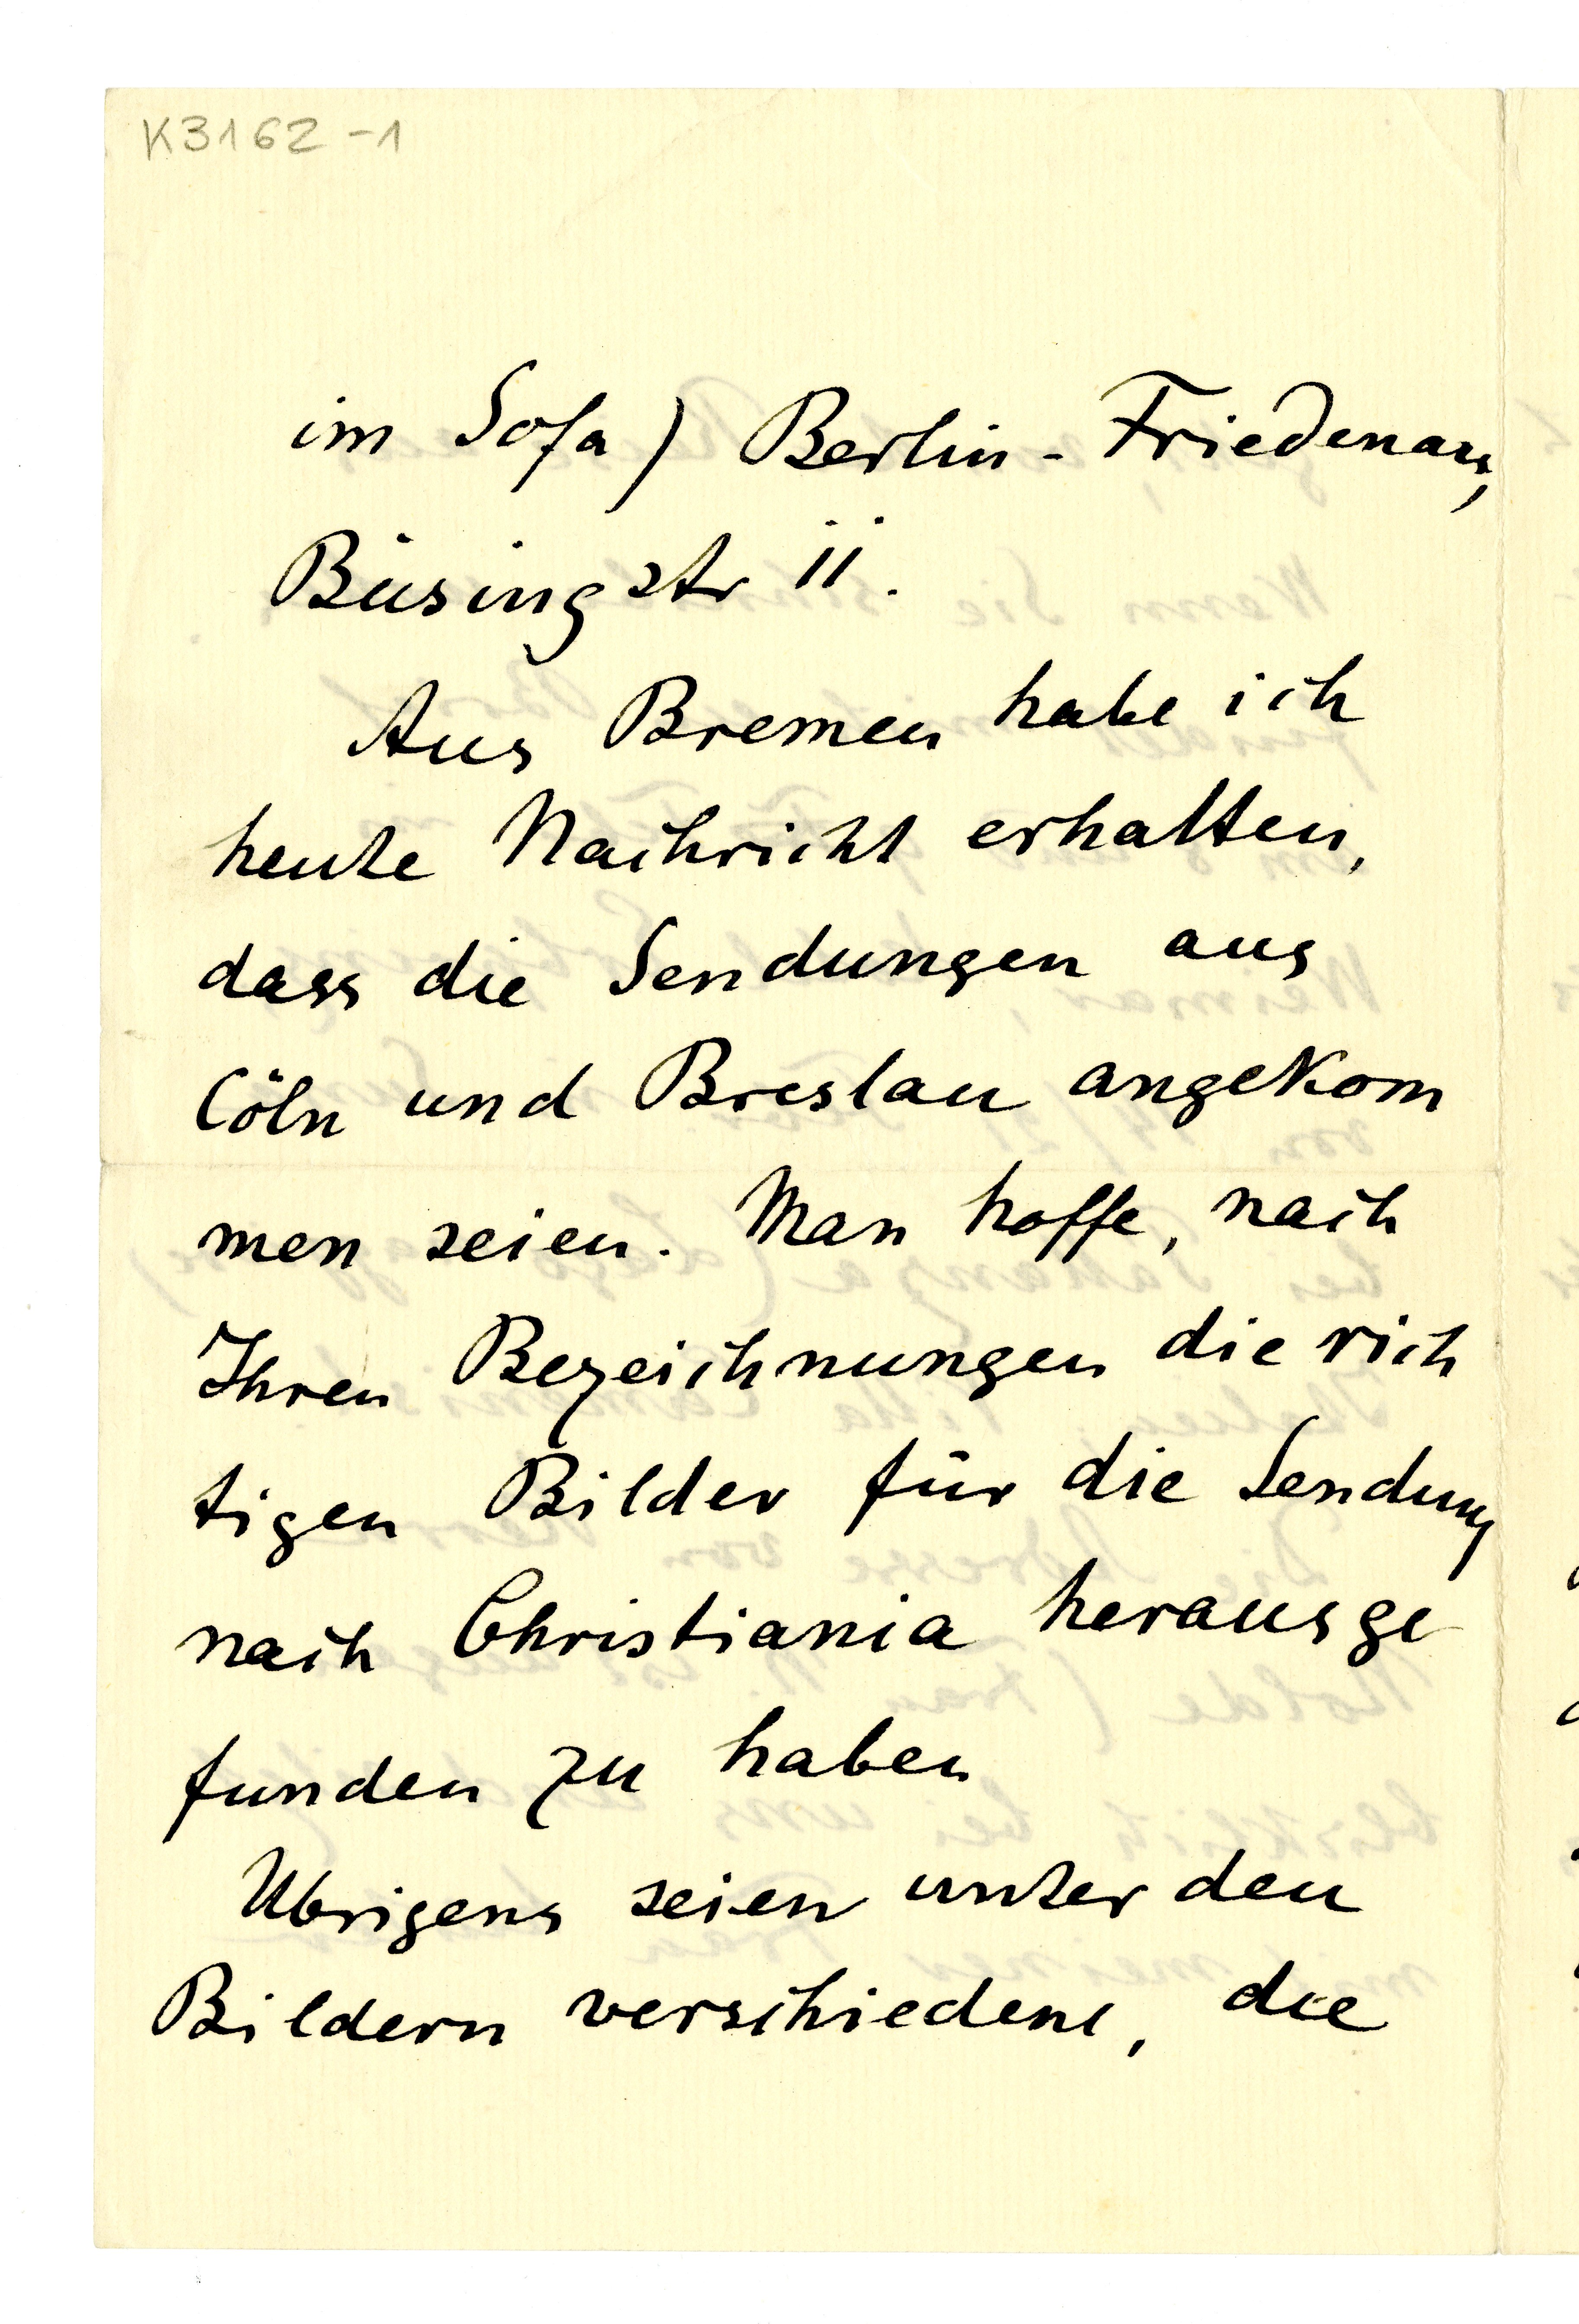 K3162-1
im Sofa) Berlin-Friedenau,
Büsingstr 11.
Aus Bremen habe ich
heute Nachricht erhalten,
dass die Sendungen aus
Cöln und Breslau angekom
men seien. Man hoffe, nach
Ihren Bezeichnungen die rich
tigen Bilder für die Sendung
nach Christiania herausge
funden zu haben
Übrigens seien unter den
Bildern verschiedene, die